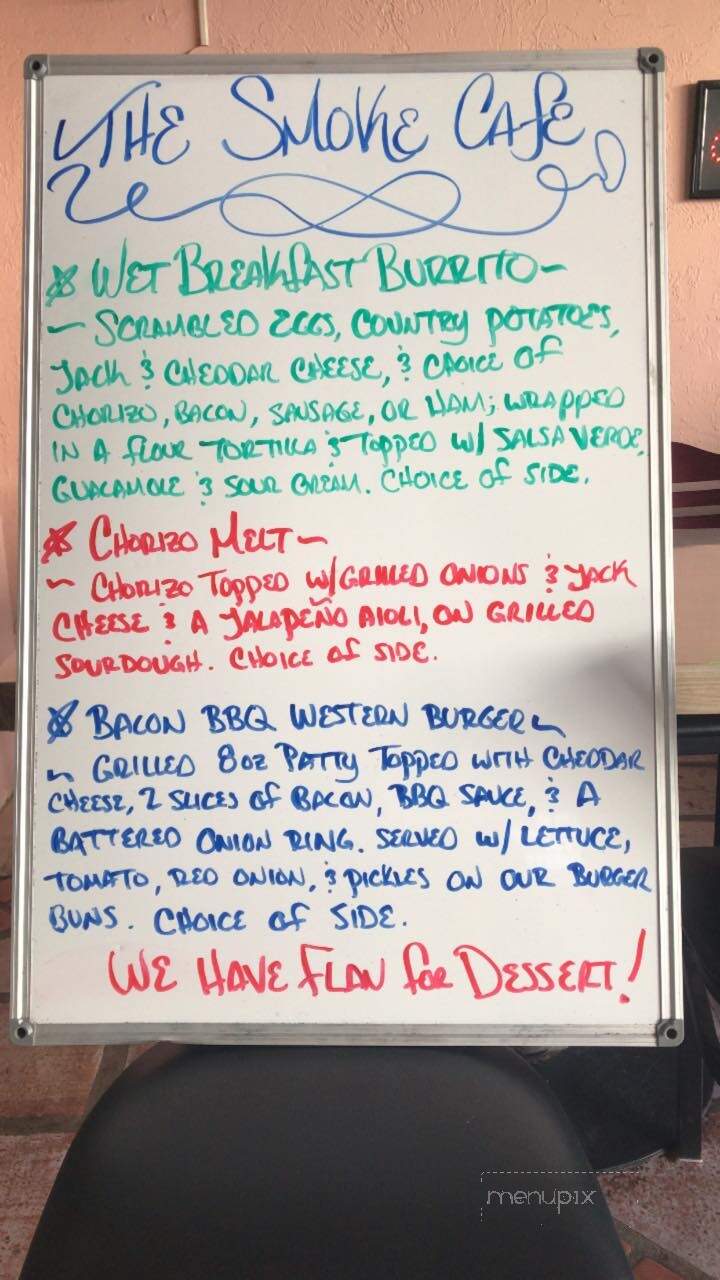 THE SMOKE CAFE
WET BREAKFAST BURRITO~
~ SCRAMBLED EGGS, COUNTRY POTATOES,
JACK & CHEDDAR CHEESE, & CHOICE OF
CHORIZO, BACON, SAUSAGE, OR HAM; WRAPPED
IN A FLOUR TORTILLA & TOPPED W/ SALSA VERDE,
GUACAMOLE & SOUR CREAM. CHOICE OF SIDE.
CHORIZO MELT~
~ CHORIZO TOPPED W/GRILLED ONIONS & JACK
CHEESE & A JALAPEÑO AIOLI, ON GRILLED
SOURDOUGH. CHOICE OF SIDE.
BACON BBQ WESTERN BURGER~
~ GRILLED 8OZ PATTY TOPPED WITH CHEDDAR
CHEESE, 2 SLICES OF BACON, BBQ SAUCE, & A
BATTERED ONION RING. SERVED W/ LETTUCE,
TOMATO, RED ONION, & PICKLES ON OUR BURGER
BUNS. CHOICE OF SIDE.
WE HAVE FLAN FOR DESSERT!
menupix